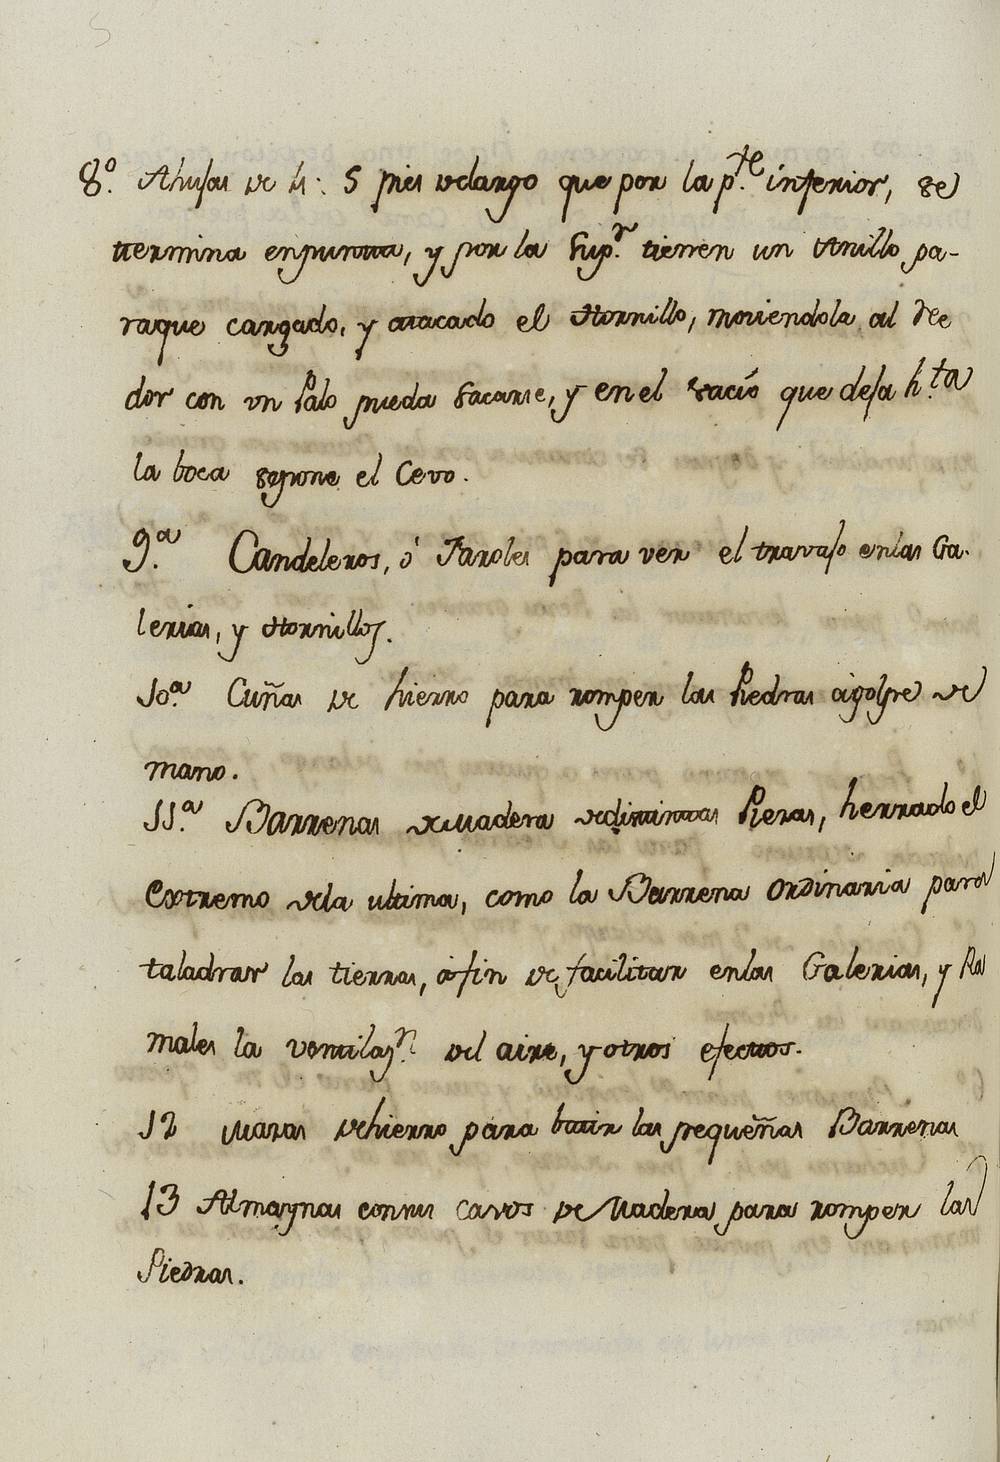 8.º Ahujas de 4: 5 pies delargo que por la p.te inferior, se
termina enpunta, y por la Sup.r tienen un Anillo pa-
raque cargado, y atacado el Hornillo, moviendola al Rede
dor con un Palo pueda Sacarse, y en el vacío que deja h.ta
la boca sepone el Cevo.
9.ª Candeleros, ó Faroles para ver el travajo enlas Ga-
lerias, y Hornillos.
10.ª Cuñas de hierro para romper las Piedras á golpe de
mano.
11.ª Barrenas de Madera dedistintas Piezas, herrado el
Extremo dela ultima, como la Barrena Ordinaria para
taladrar las tierras, á fin de facilitar enlas Galerias, y Ra
males la ventilaz.n del aire, y otros efectos.
12 Mazas dehierro para batir las pequeñas Barrenas
13 Almaynas consus cavos de Madera para romper las
Piedras.